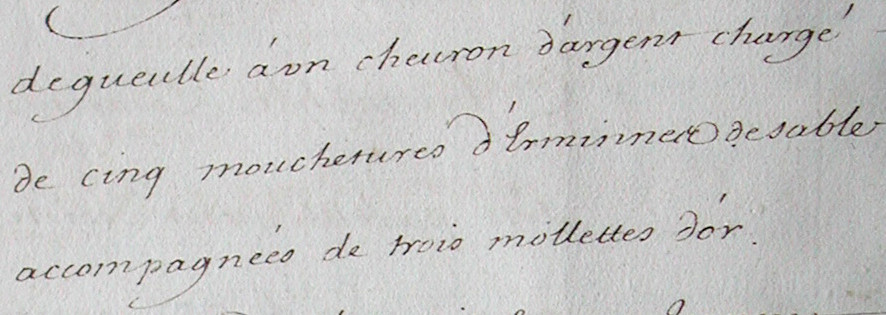 degueulle àvn cheuron d'argent chargé
de cinq mouchetures d'Erminne desable
accompagnées de trois mollettes d'or.